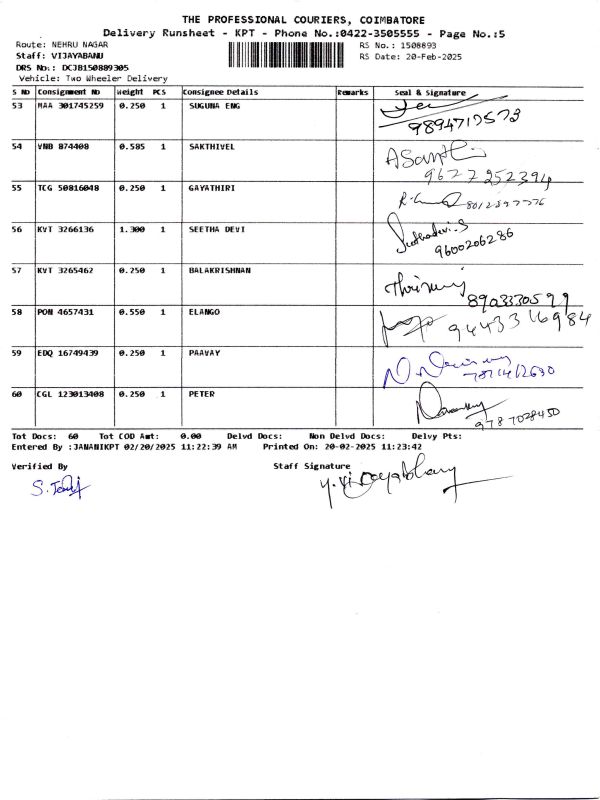 THE PROFESSIONAL COURIERS, COIMBATORE
Delivery Runsheet - KPT - Phone No.:0422-3505555 - Page No.:5
Route: NEHRU NAGAR RS No.: 1508893
Staff: VIJAYABANU RS Date: 20-Feb-2025
DRS No.: DCJB150889305
Vehicle: Two Wheeler Delivery
S No Consignment No Weight PCS Consignee Details Remarks Seal & Signature
53 MAA 301745259 0.250 1 SUGUNA ENG
54 VNB 874408 0.585 1 SAKTHIVEL
9677252394
55 TCG 50816048 0.250 1 GAYATHIRI
56 KVT 3266136 1.300 1 SEETHA DEVI
9600206286
57 KVT 3265462 0.250 1 BALAKRISHNAN
8903330599
58 PON 4657431 0.550 1 ELANGO
9443316984
59 EDQ 16749439 0.250 1 PAAVAY
60 CGL 123013408 0.250 1 PETER
9787028450
Tot Docs: 60 Tot COD Amt: 0.00 Delvd Docs: Non Delvd Docs: Delvy Pts:
Entered By :JANANIKPT 02/20/2025 11:22:39 AM Printed On: 20-02-2025 11:23:42
Verified By Staff Signature